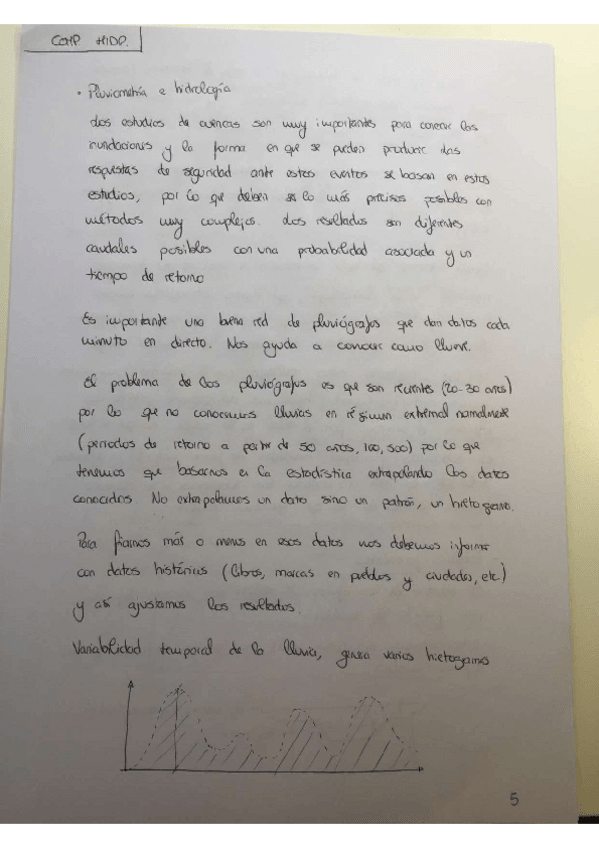 COMP HIDD.
• Pluviometría e hidrología
Los estudios de cuencas son muy importantes para conocer las
inundaciones y la forma en que se pueden producir. Las
respuestas de seguridad ante estos eventos se basan en estos
estudios, por lo que deben se lo más precisos posibles con
métodos muy complejos. Los resultados son diferentes
caudales posibles con una probabilidad asociada y un
tiempo de retorno
Es importante una buena red de pluviógrafos que dan datos cada
minuto en directo. Nos ayuda a conocer como llueve.
El problema de los pluviógrafos es que son recientes (20-30 años)
por lo que no conocemos lluvias en régimen extremal normalmente
(periodos de retorno a partir de 50 años, 100, 500) por lo que
tenemos que basarnos en la estadística extrapolando los datos
conocidos. No extrapolamos un dato sino un patrón, un hietograma.
Para fiarnos más o menos en esos datos nos debemos informar
con datos históricos (libros, marcas en pueblos y ciudades, etc)
y así ajustamos los resultados.
Variabilidad temporal de la lluvia, genera varios hietogramas
5